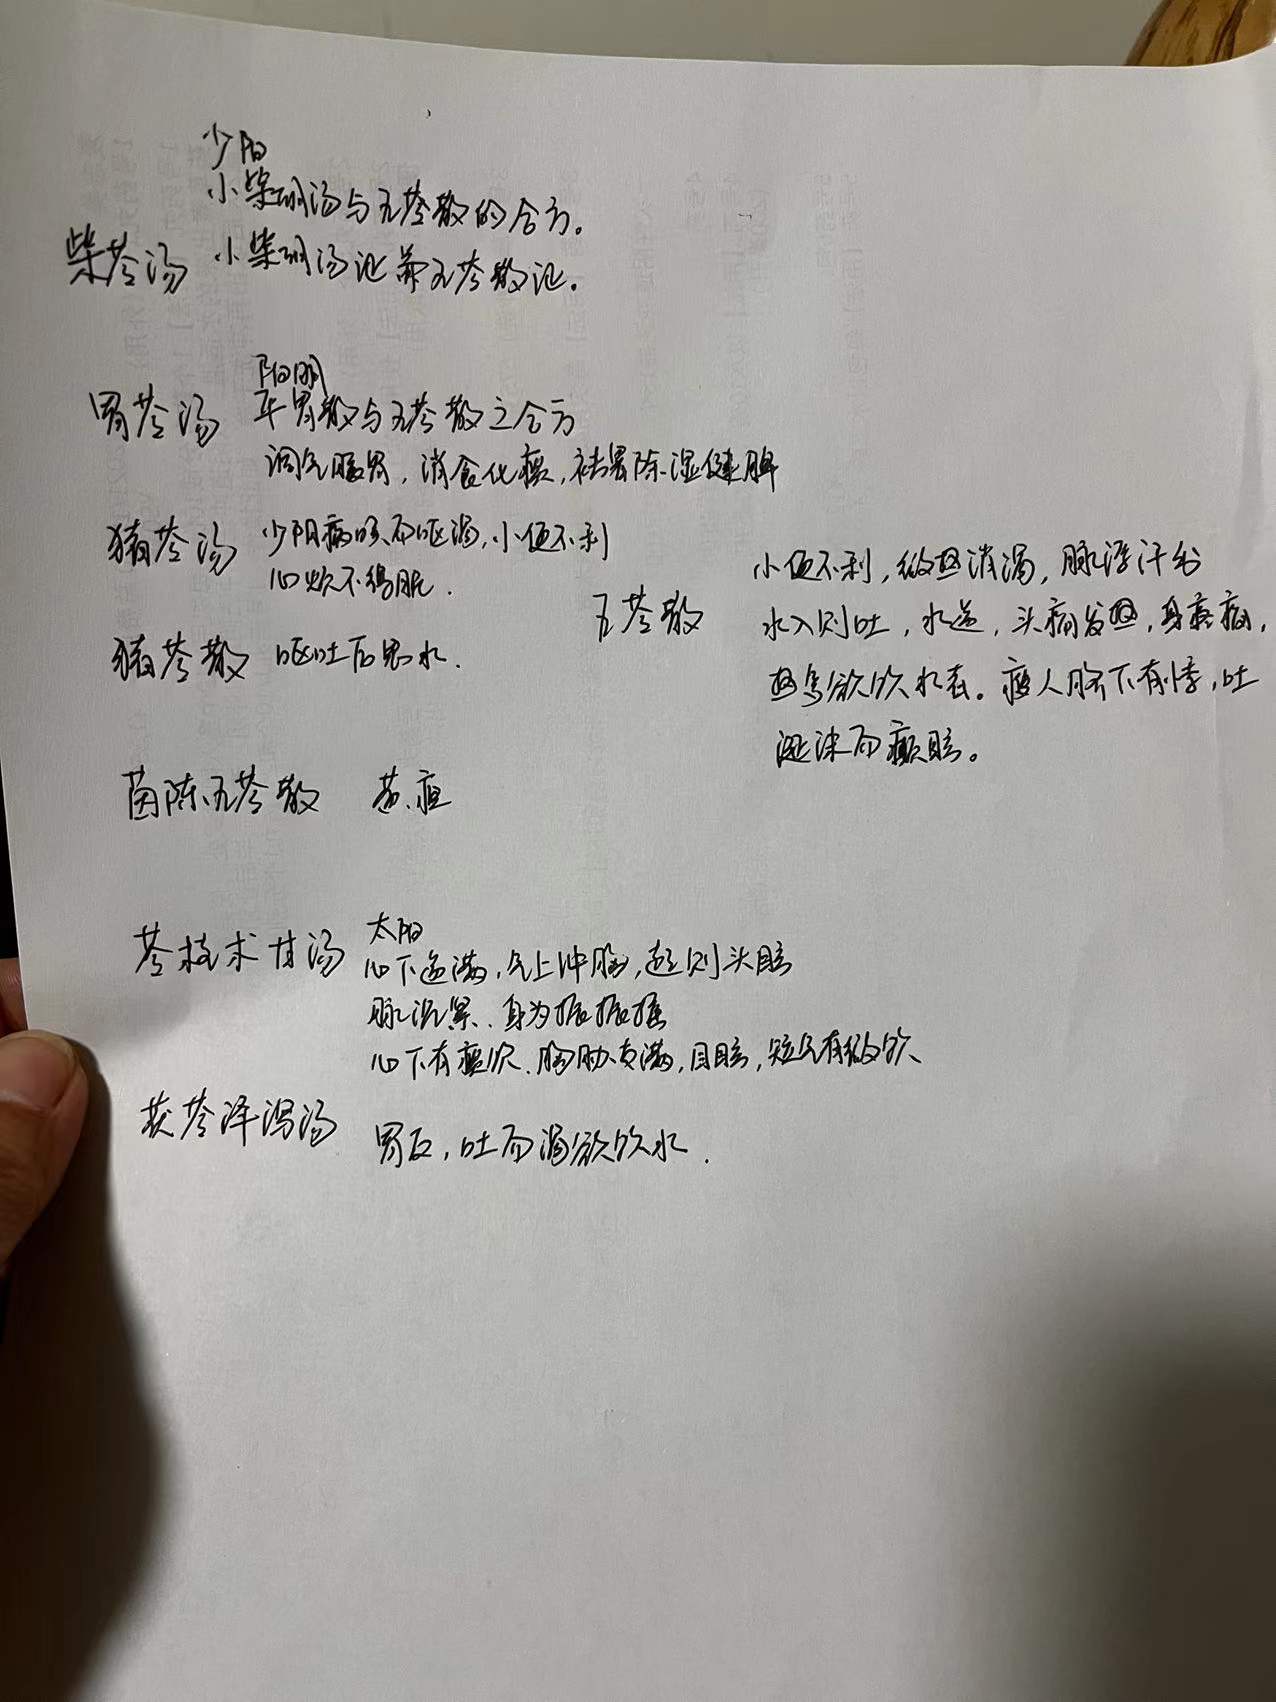 少阳
小柴胡汤与五苓散的合方。
柴苓汤 小柴胡汤证兼五苓散证。
阳明
胃苓汤 平胃散与五苓散之合方
调气暖胃，消食化痰，祛暑除湿健脾
猪苓汤 少阴病咳而呕渴，小便不利
心烦不得眠．
猪苓散 呕吐后思水．
五苓散 小便不利，微热消渴，脉浮汗出
水入则吐，水逆，头痛发热，身疼痛，
热多欲饮水者。瘦人脐下有悸，吐
涎沫而癫眩。
茵陈五苓散 黄疸
太阳
苓桂术甘汤 心下逆满，气上冲胸，起则头眩
脉沉紧、身为振振摇
心下有痰饮、胸胁支满，目眩，短气有微饮
茯苓泽泻汤 胃反，吐而渴欲饮水．